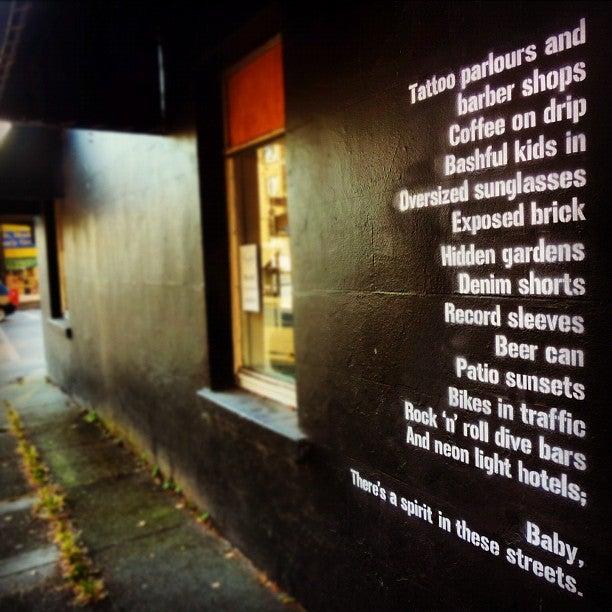 Tattoo parlours and
barber shops
Coffee on drip
Bashful kids in
Oversized sunglasses
Exposed brick
Hidden gardens
Denim shorts
Record sleeves
Beer can
Patio sunsets
Bikes in traffic
Rock 'n' roll dive bars
And neon light hotels;
Baby,
There's a spirit in these streets.